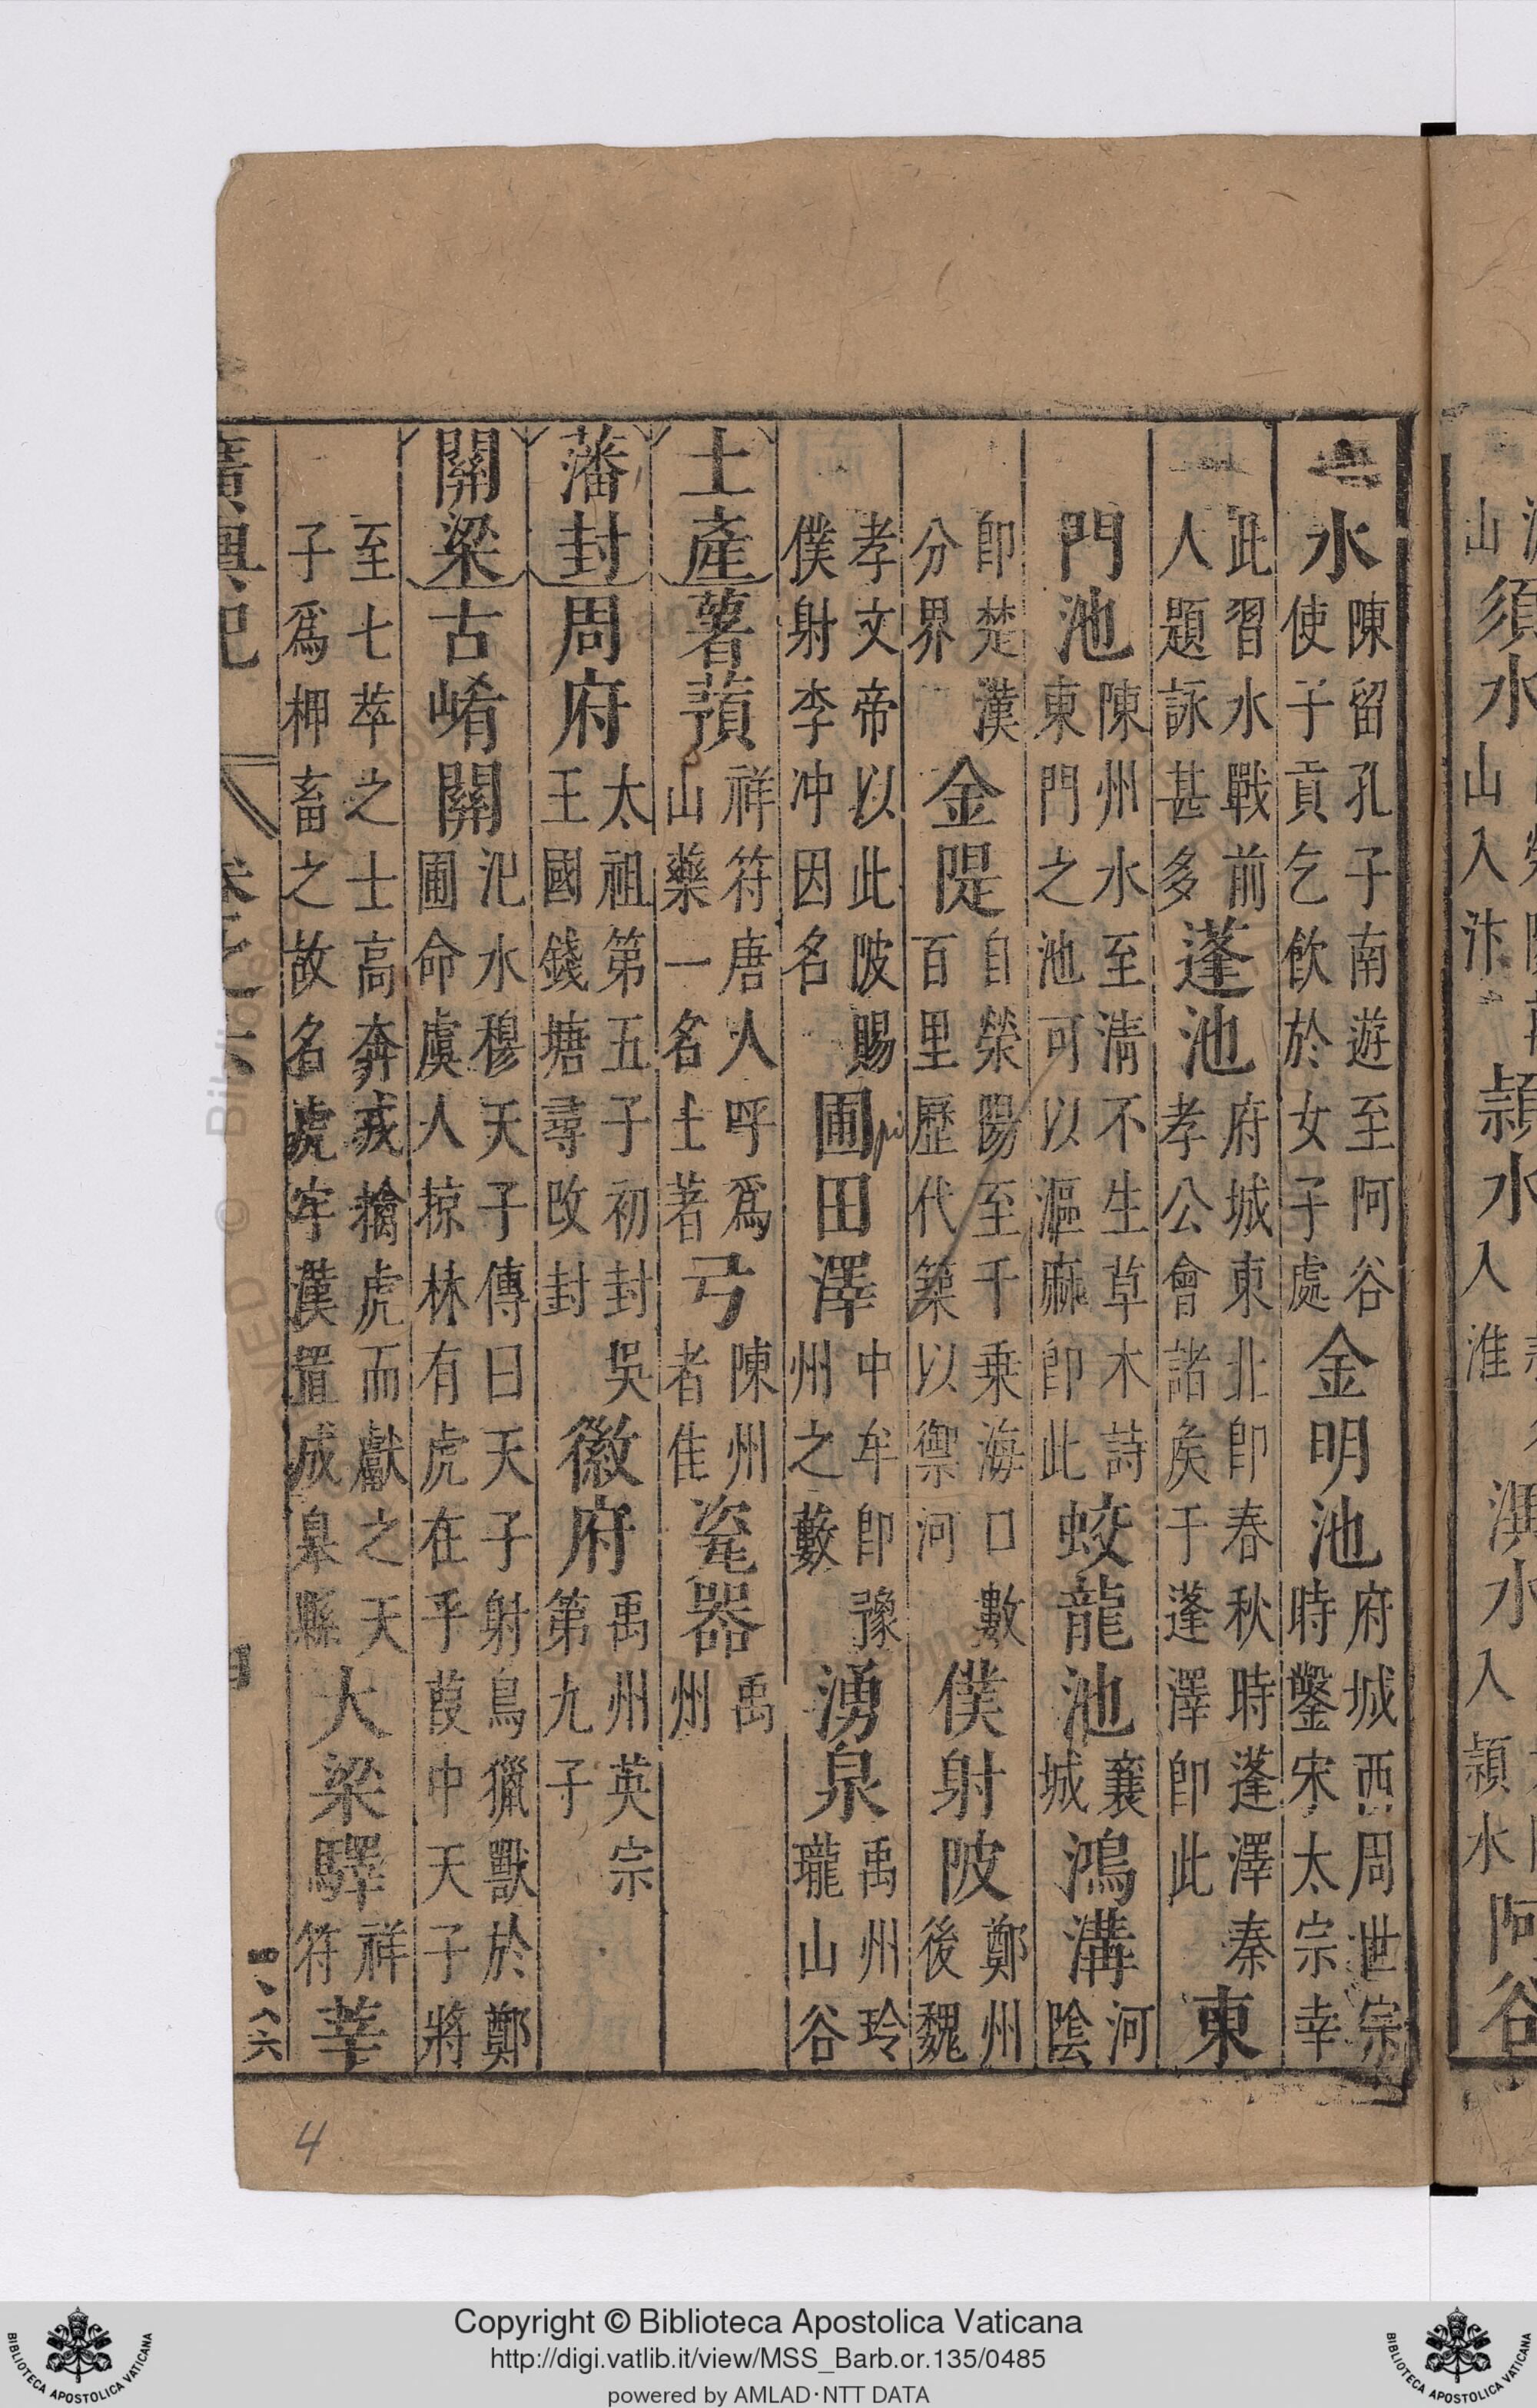 水陳留孔子南遊至阿谷使子貢乞飲於女子處金明池府城西周世宗時鑿宋太宗幸
此習水戰前人題詠甚多蓬池府城東北即春秋時蓬澤秦孝公會諸矦于蓬澤即此東
門池陳州水至清不生草木詩東門之池可以漚麻即此蛟龍池襄城鴻溝河陰
即楚漢分界金隄自滎陽至千乗海口數百里歷代築以禦河僕射陂鄭州後魏
孝文帝以此陂賜僕射李冲因名圃田澤中牟即豫州之藪湧泉禹州玲瓏山谷
土產薯蕷祥符唐人呼爲山藥一名土著弓陳州者佳瓷器禹州
藩封周府太祖第五子初封吳王國錢塘尋改封徽府禹州英宗第九子
關梁古崤關汜水穆天子傳曰天子射鳥獵獸於鄭圃命虞人掠林有虎在乎葭中天子將
至七萃之士高奔戎擒虎而獻之天子爲柙畜之故名虎牢漢置成皋縣大梁驛祥符莘
廣輿記
四
須水
山入汴
頴水
入淮
溵水
入頴水
阿谷
4
© Biblioteca Apostolica Vaticana
Copyright © Biblioteca Apostolica Vaticana
http://digi.vatlib.it/view/MSS_Barb.or.135/0485
powered by AMLAD·NTT DATA
BIBLIOTECA APOSTOLICA VATICANA
BIBLIOTECA APOSTOLICA VATICANA